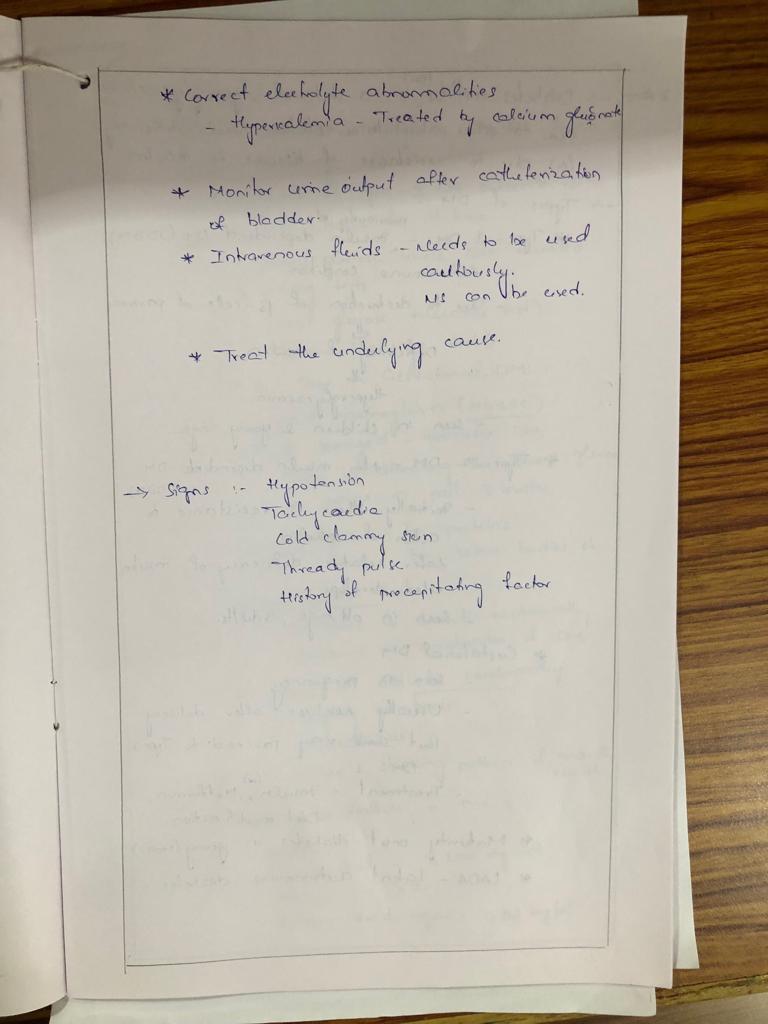 * Correct electrolyte abnormalities
- Hyperkalemia - Treated by calcium gluconate
* Monitor urine output after catheterization
of bladder.
* Intravenous fluids - Needs to be used
cautiously.
NS can be used.
* Treat the underlying cause.
→ Signs :- Hypotension
Tachycardia
Cold clammy skin
Thready pulse
History of precepitating factor